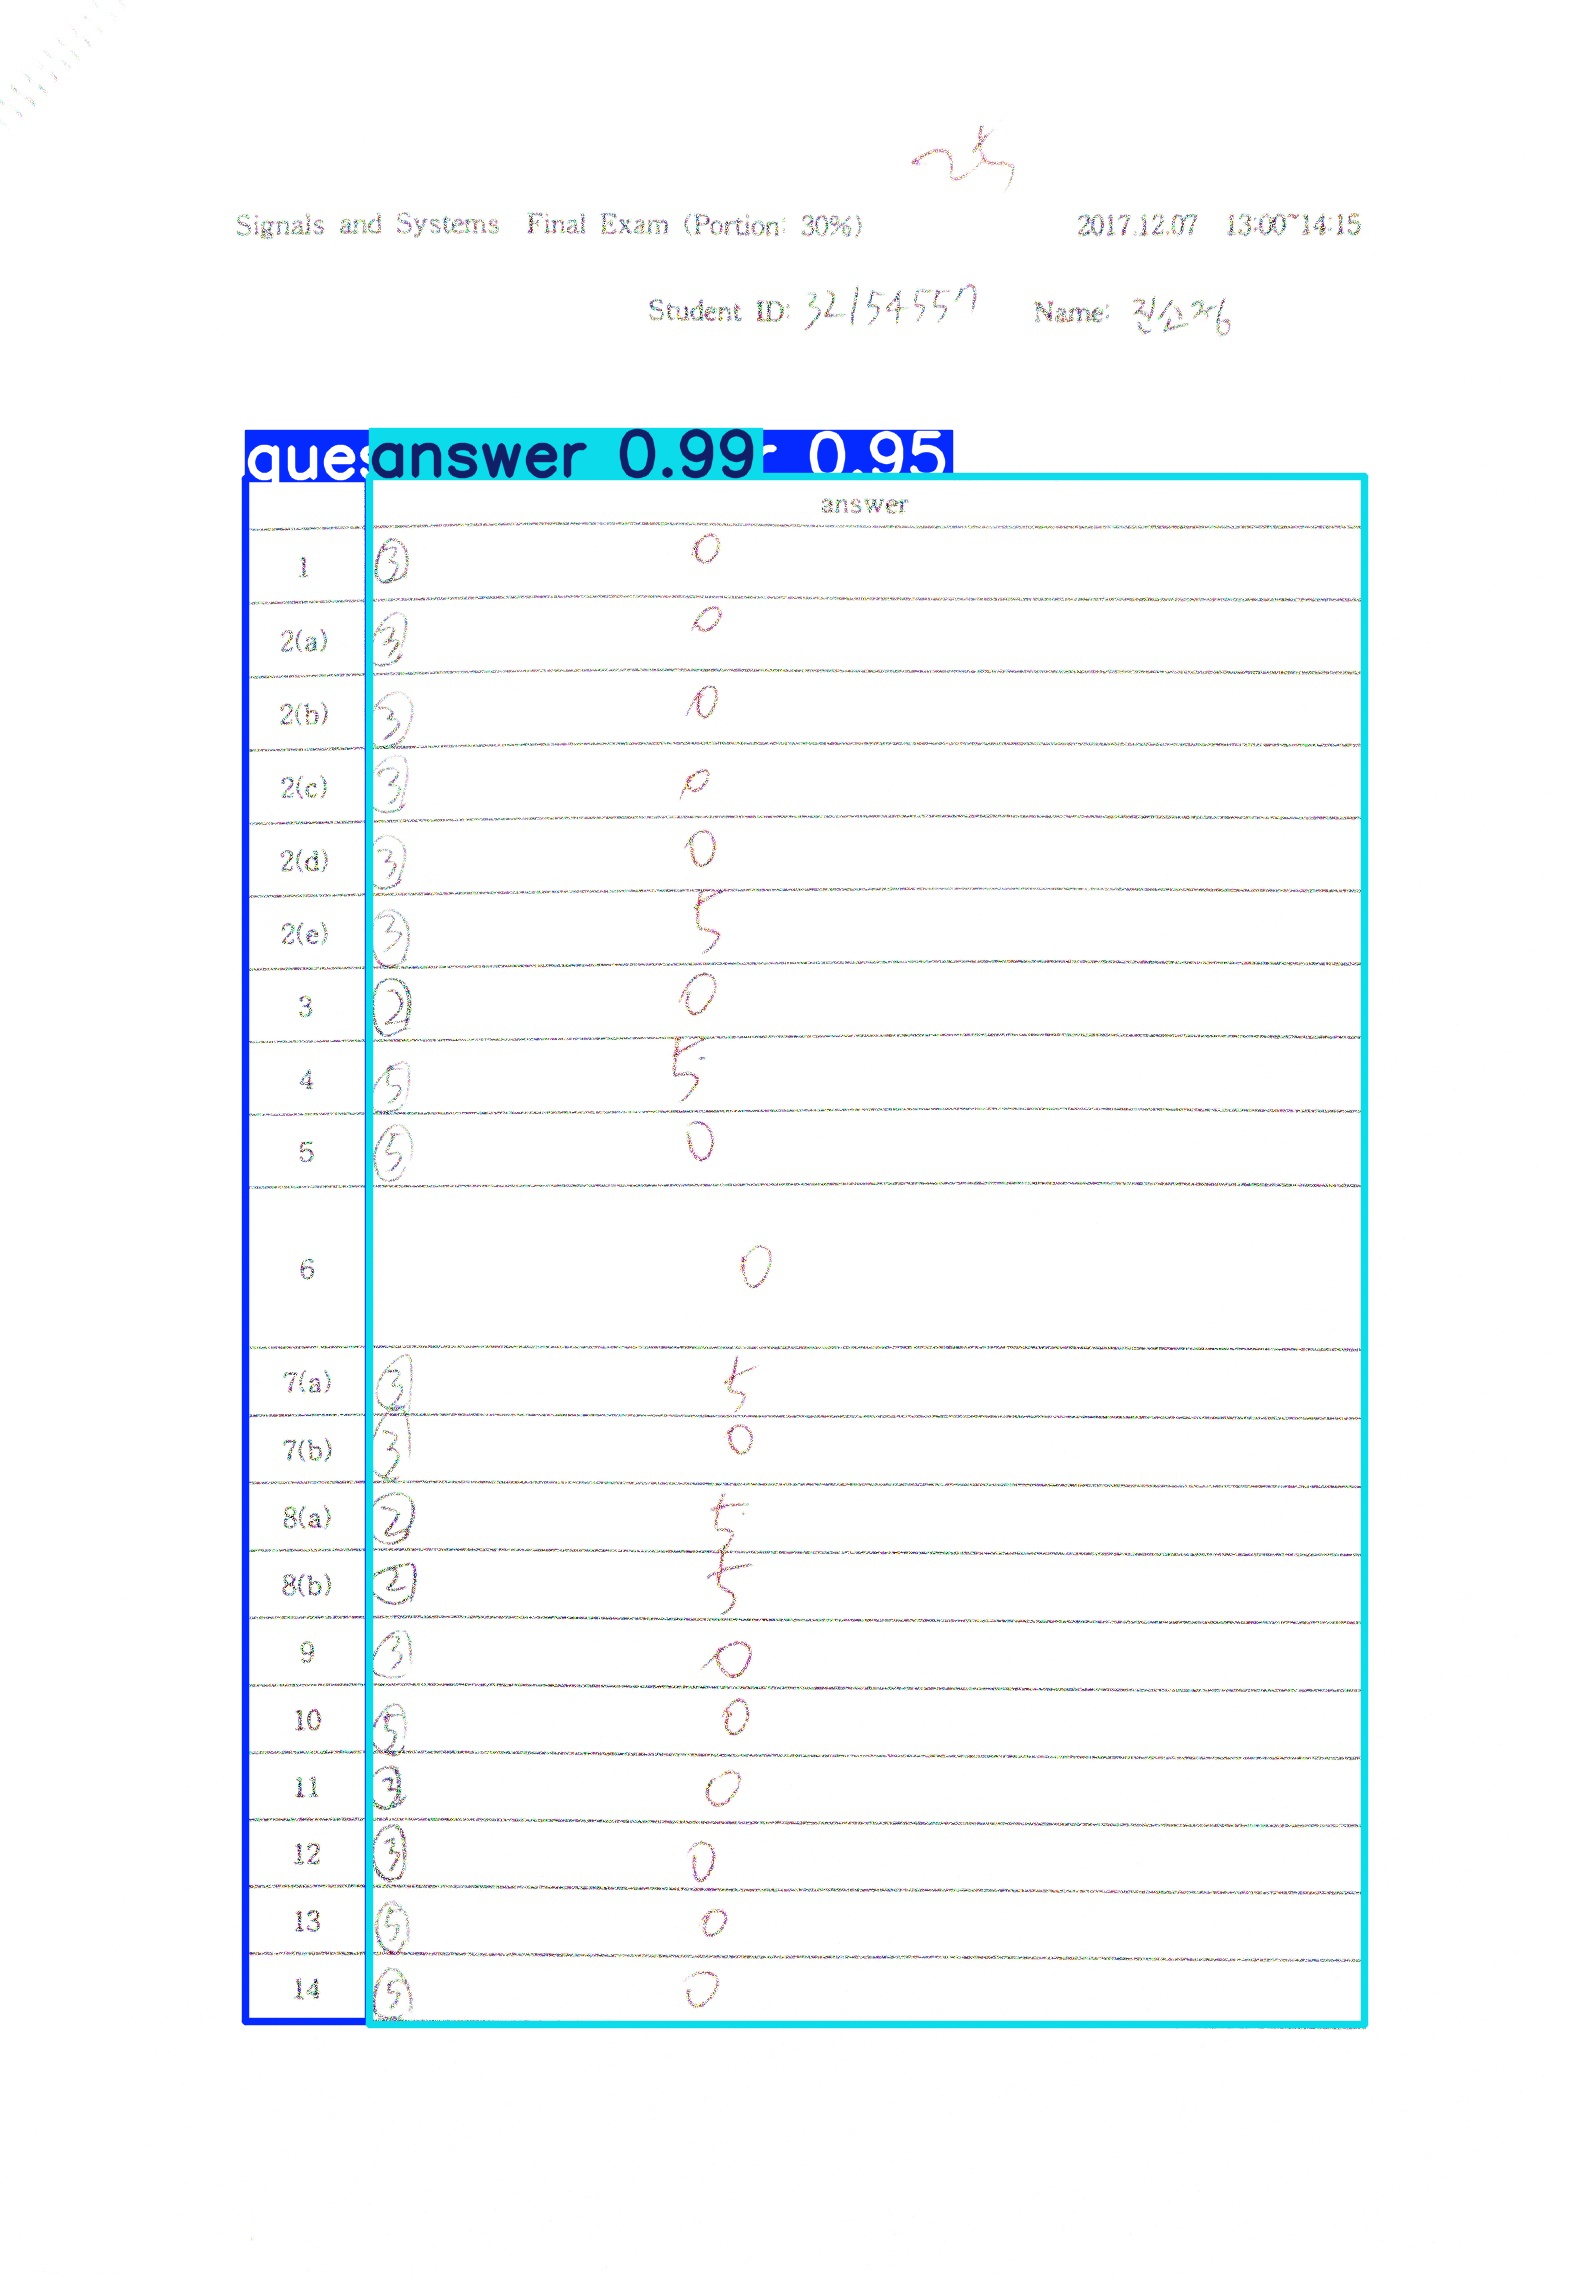 25
Signals and Systems Final Exam (Portion: 30%) 2017.12.07 13:00~14:15
Student ID: 32154557 Name:
answer 0.99 0.95
answer
1 ③ 0
2(a) ③ 0
2(b) ③ 0
2(c) ③ 0
2(d) ③ 0
2(e) ③ 5
3 ② 0
4 ⑤ 5
5 ⑤ 0
6 0
7(a) ③ 5
7(b) 3 0
8(a) ② 5
8(b) ② 5
9 ③ 0
10 ⑤ 0
11 0
12 ③ 0
13 ⑤ 0
14 ⑤ 0